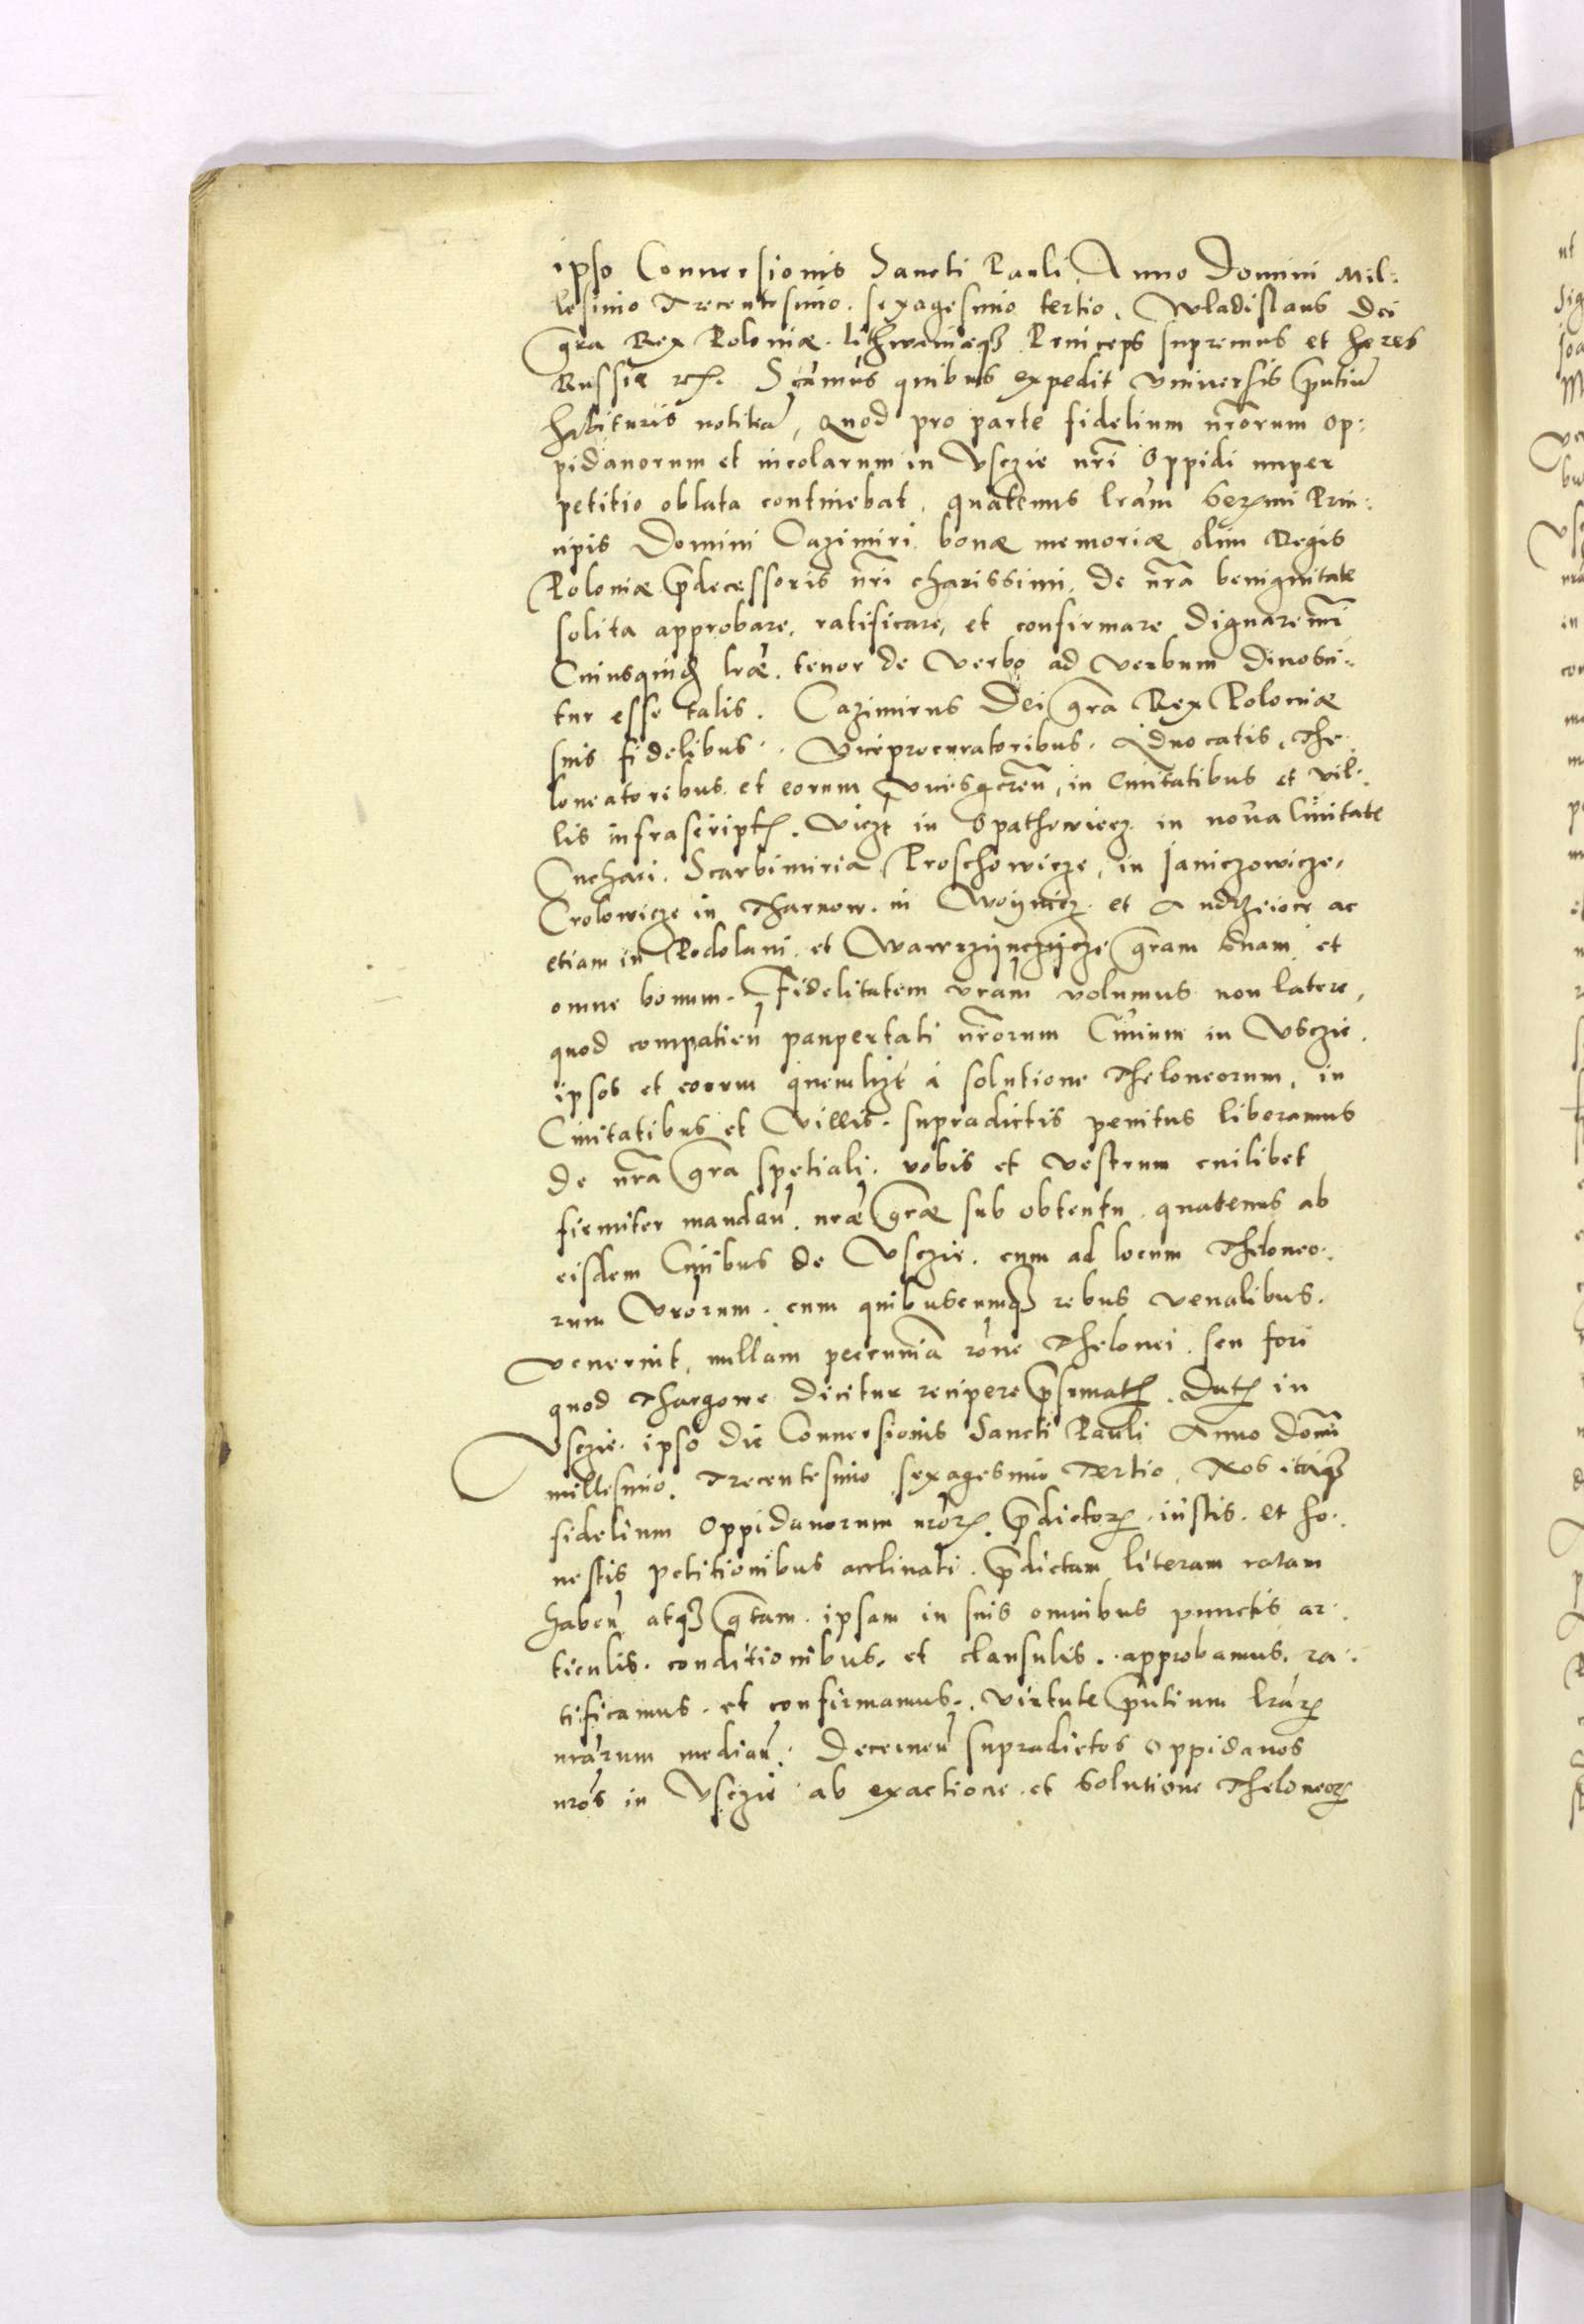 ipso Conuersionis Sancti Pauli Anno Domini Mil:
lesimo Trecentesimo. sexagesimo tertio. Wladislaus Dei
gra Rex Poloniæ. lithwaniæq3 Princeps supremus et heres
Russiæ etc. Scamus quibus expedit vniuersis pntiu
habituris notitia, Quod pro parte fidelium nrorum op:
pidanorum et incolarum in Vsczie nri Oppidi nuper
petitio oblata continebat, quatenus lram Serxmi Prin:
cipis Domini Cazimiri bonæ memoriæ olim Regis
Poloniæ pdecessoris nri charissimi. de nra benignitate
solita approbare, ratificare, et confirmare dignaremi
Cuiusquid lræ. tenor de verbo ad verbum dinosci:
tur esse talis. Cazimirus Dei gra Rex Poloniæ
suis fidelibus. Viceprocuratoribus. Aduocatis, The:
loneatoribus et eorum vicesgeren, in Ciuitatibus et vil:
lis infrascriptis. viczt in Opathowiecz in noua Ciuitate
Cuchari. Scarbimiria Proschowicze, in Janiczowicze,
Crolowicze in Tharnow. in Woynicz et Andrzeiow ac
etiam in Podolani et Wawrzynczycze gram suam et
omne bonum. Fidelitatem vram volumus non latere,
quod compatien paupertati nrorum Ciuium in Vsczie.
ipsos et eorum quemlizt à solutione Theloneorum, in
Ciuitatibus et Villis. supradictis penitus liberamus
de nra gra spetiali. vobis et vestrum cuilibet
firmiter mandan. nræ græ sub obtentu. quatenus ab
eisdem Ciuibus de Vsczie. cum ad locum Theloneo:
rum vrorum. cum quibuscumq3 rebus venalibus.
venerint, nullam pecunia rone Thelonei. seu fori
quod Thargowe dicitur recipere psumatis. Datis in
Vsczie. ipso die Conuersionis Sancti Pauli Anno domi
millesimo. Trecentesimo sexagesimo Tertio. Nos itaq3
fidelium Oppidanorum nror. pdictor. iustis. et ho:
nestis petitionibus acclinati. pdictam literam ratam
haben atq3 gtam. ipsam in suis omnibus punctis ar:
ticulis. conditionibus. et clausulis. approbamus. ra:
tificamus. et confirmamus. virtute pntium lrar
nrarum median. Decernen supradictos Oppidanos
nros in Vsczie ab exactione. et Solutione Theloneor